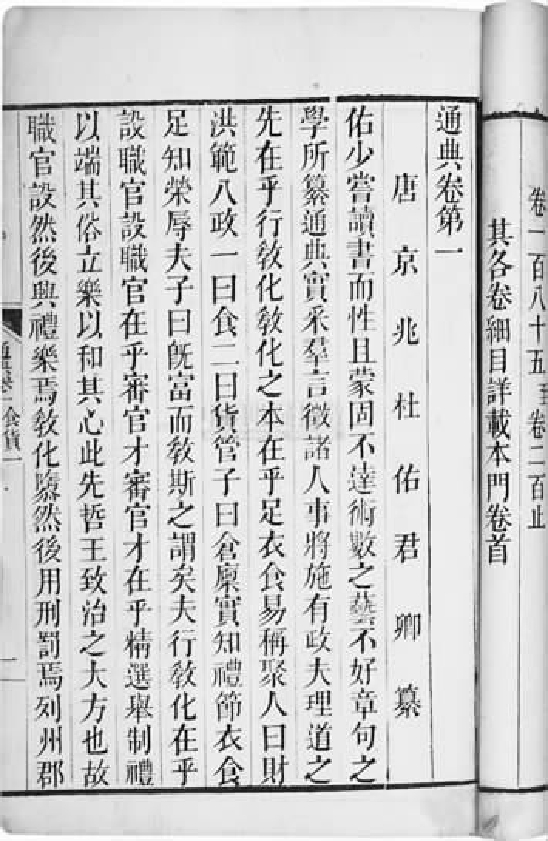 卷一百八十五至卷二百止
其各卷細目詳載本門卷首
通典卷第一
唐京兆杜佑君卿纂
佑少嘗讀書而性且蒙固不達術數之藝不好章句之
學所纂通典實采羣言徵諸人事將施有政夫理道之
先在乎行敎化敎化之本在乎足衣食易稱聚人曰財
洪範八政一曰食二曰貨管子曰倉廩實知禮節衣食
足知榮辱夫子曰旣富而敎斯之謂矣夫行敎化在乎
設職官設職官在乎審官才審官才在乎精選舉制禮
以端其俗立樂以和其心此先哲王致治之大方也故
職官設然後興禮樂焉敎化隳然後用刑罰焉列州郡
通典卷一食貨一
一